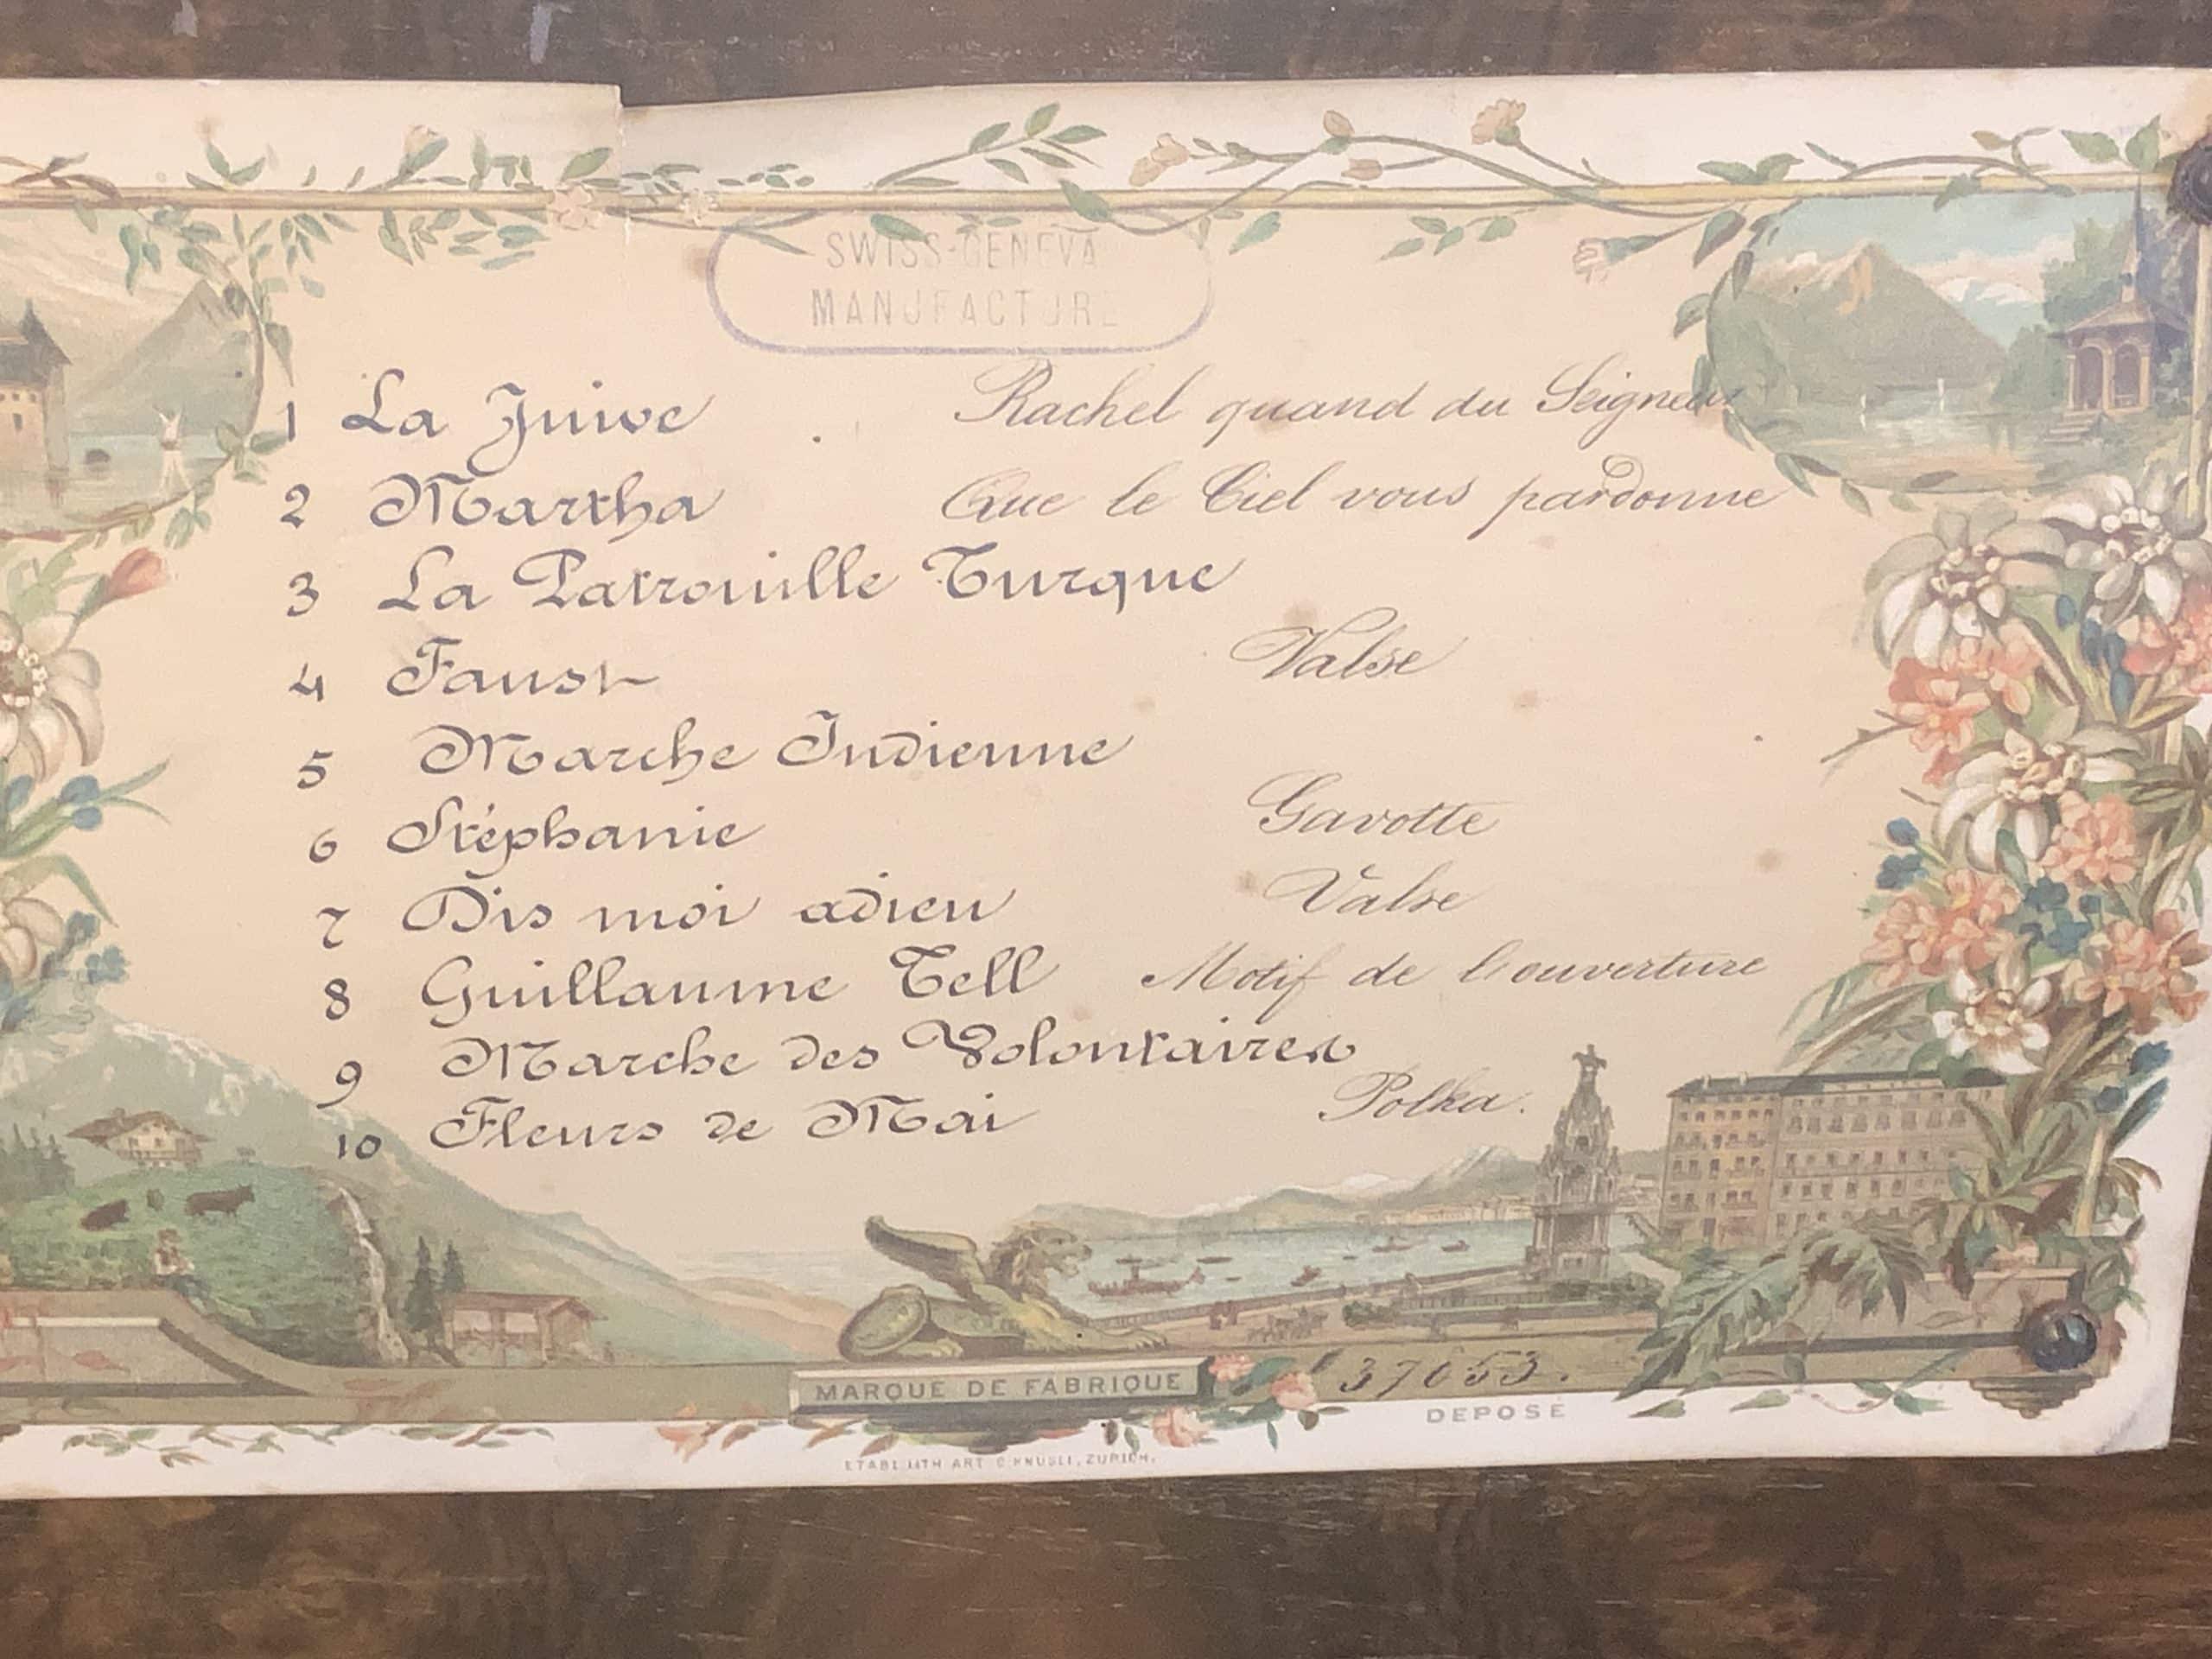 SWISS-GENEVA
MANUFACTURE
1 La Juive Rachel quand du Seigneur
2 Martha Que le Ciel vous pardonne
3 La Patrouille Turque
4 Faust Valse
5 Marche Indienne
6 Stéphanie Gavotte
7 Dis moi adieu Valse
8 Guillaume Tell Motif de l'ouverture
9 Marche des Volontaires
10 Fleurs de Mai Polka.
MARQUE DE FABRIQUE
37653.
DEPOSÉ
ETABL. LITH. ART. C. KNÜSLI, ZURICH.